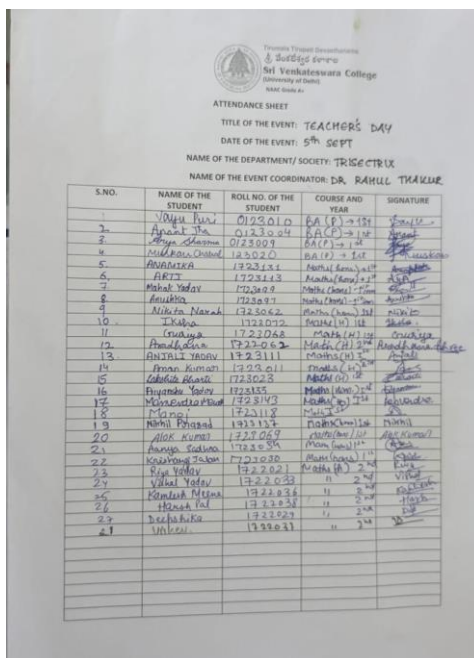 Tirumala Tirupati Devasthanams
శ్రీ వేంకటేశ్వర కళాశాల
Sri Venkateswara College
(University of Delhi)
NAAC Grade A+
ATTENDANCE SHEET
TITLE OF THE EVENT: TEACHER'S DAY
DATE OF THE EVENT: 5th SEPT
NAME OF THE DEPARTMENT/ SOCIETY: TRISECTRIX
NAME OF THE EVENT COORDINATOR: DR RAHUL THAKUR
S.NO. NAME OF THE STUDENT ROLL NO. OF THE STUDENT COURSE AND YEAR SIGNATURE
1 Vayu Puri 0123010 BA(P) → 1st
2. Anant Jha 0123004 BA(P) → 1st Anant
3. Sharma 0123009 BA(P) → 1st
4 Muskan 123020 BA(P) → 1st Muskan
5 ANAMIKA 1723131 Maths (hons)
6. ARTI 1723113 Maths (hons)
7 Mahak Yadav 1723009 Maths (hons)
8 Anushka 1723097 Maths (hons)
9 Nikita 1723062 Maths (hons) 1st Nikita
10. 1723072 Maths (H) 1st
11 Gudiya 1722068 Math (H) Gudiya
12 Aradhana 1722062 Math (H) 2nd Aradhana
13. ANJALI YADAV 1723111 Maths (H) Anjali
14 Aman Kumar 1722011 maths (H) 2nd
15 Bharti 1723023 Maths (H) 1st
16 Priyanshu Yadav 1723135 Maths (hons.) 1st
17 1723143 Maths (H) 1st
18 Manoj 1723118 1st
19 Nikhil Prasad 1723127 Maths (hons) 1st Nikhil
20 Alok Kumar 1723069 Maths (hons) 1st Alok Kumar
21 Aanya 1723034 Math (hons) 1st
22 Krishang 1723030 Math (hons) 1st
23 Riya Yadav 1722021 Maths (H) 2nd Riya
24 Vishal Yadav 1722033 " 2nd Vishal
25 Kamlesh Meena 1722036 " 2nd Kamlesh
26 Harsh Pal 1722038 " 2nd Harsh
27 Deepshika 1722029 " 2nd
21 1722037 " 2nd